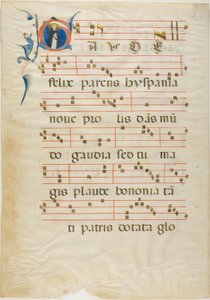 GAUDE
felix parens hyspania
noue prolis dans mū
do gaudia sed tu ma
gis plaude bononia tā
ti patris dotata glo